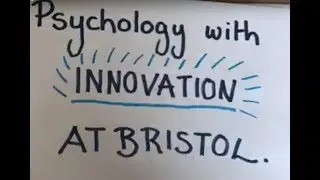 Psychology with
INNOVATION
AT BRISTOL.